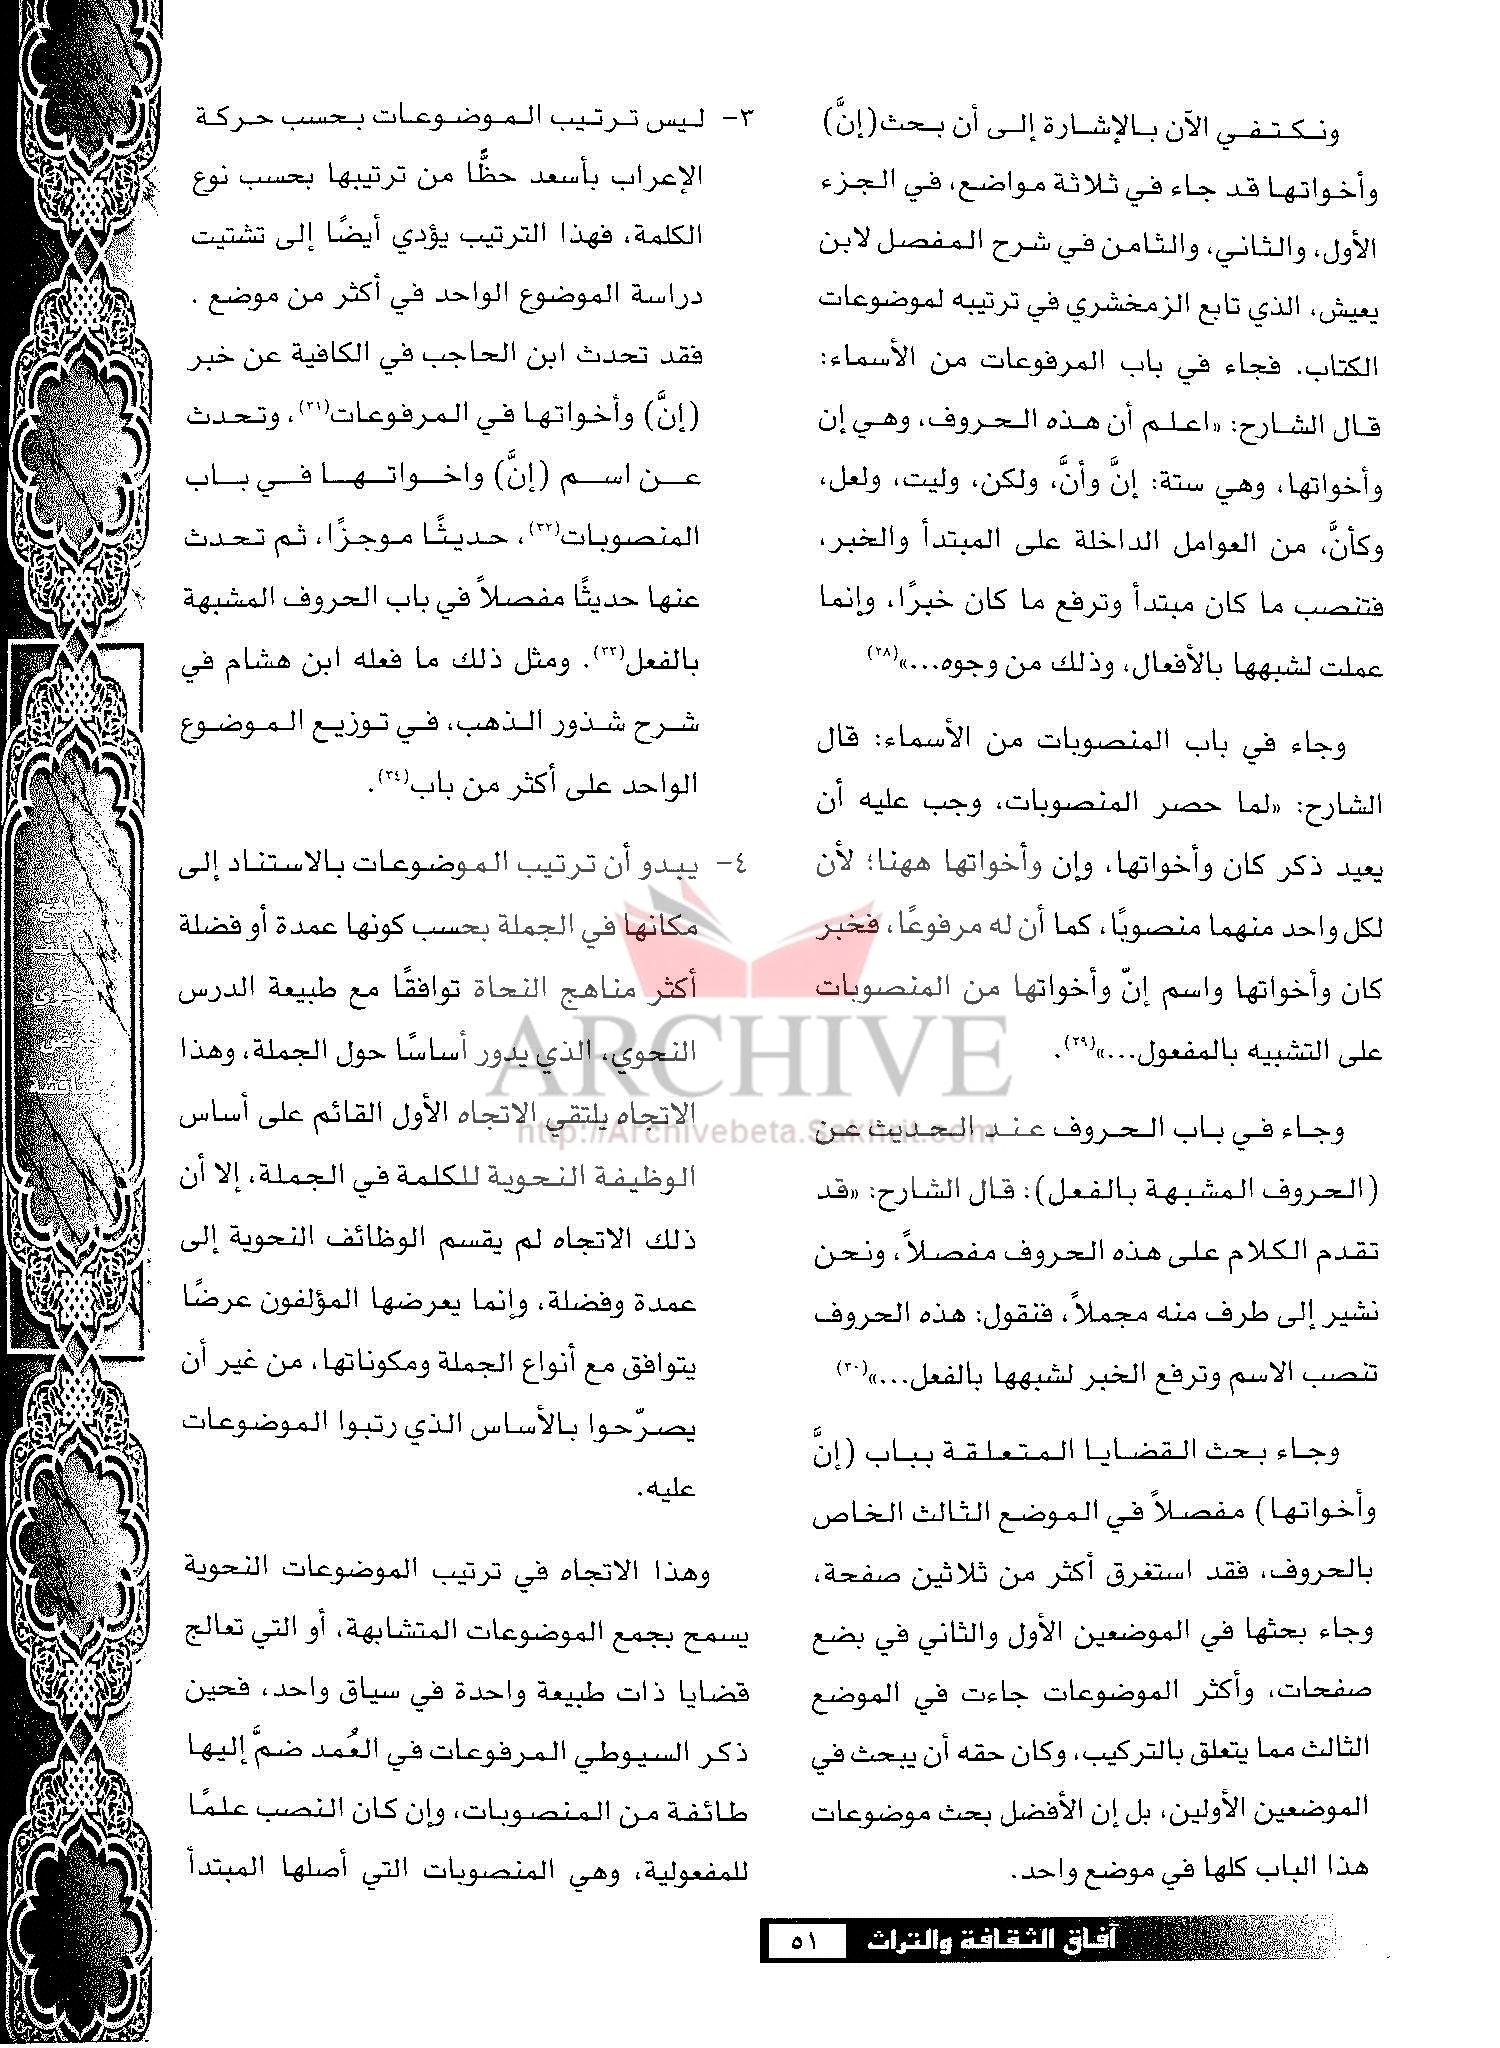 ونكتفي الآن بالإشارة إلى أن بحث (إنَّ)
وأخواتها قد جاء في ثلاثة مواضع، في الجزء
الأول، والثاني، والثامن في شرح المفصل لابن
يعيش، الذي تابع الزمخشري في ترتيبه لموضوعات
الكتاب. فجاء في باب المرفوعات من الأسماء:
قال الشارح: «اعلم أن هذه الحروف، وهي إن
وأخواتها، وهي ستة: إنَّ وأنَّ، ولكن، وليت، ولعل،
وكأنَّ، من العوامل الداخلة على المبتدأ والخبر،
فتنصب ما كان مبتدأ وترفع ما كان خبرًا، وإنما
عملت لشبهها بالأفعال، وذلك من وجوه...»(٢٨)
وجاء في باب المنصوبات من الأسماء: قال
الشارح: «لما حصر المنصوبات، وجب عليه أن
يعيد ذكر كان وأخواتها، وإن وأخواتها ههنا؛ لأن
لكل واحد منهما منصوبًا، كما أن له مرفوعًا، فخبر
كان وأخواتها واسم إنّ وأخواتها من المنصوبات
على التشبيه بالمفعول...»(٢٩).
وجاء في باب الحروف عند الحديث عن
(الحروف المشبهة بالفعل): قال الشارح: «قد
تقدم الكلام على هذه الحروف مفصلاً، ونحن
نشير إلى طرف منه مجملاً، فنقول: هذه الحروف
تنصب الاسم وترفع الخبر لشبهها بالفعل...»(٣٠)
وجاء بحث القضايا المتعلقة بباب (إنَّ
وأخواتها) مفصلاً في الموضع الثالث الخاص
بالحروف، فقد استغرق أكثر من ثلاثين صفحة،
وجاء بحثها في الموضعين الأول والثاني في بضع
صفحات، وأكثر الموضوعات جاءت في الموضع
الثالث مما يتعلق بالتركيب، وكان حقه أن يبحث في
الموضعين الأولين، بل إن الأفضل بحث موضوعات
هذا الباب كلها في موضع واحد.
٣- ليس ترتيب الموضوعات بحسب حركة
الإعراب بأسعد حظًّا من ترتيبها بحسب نوع
الكلمة، فهذا الترتيب يؤدي أيضًا إلى تشتيت
دراسة الموضوع الواحد في أكثر من موضع .
فقد تحدث ابن الحاجب في الكافية عن خبر
(إنَّ) وأخواتها في المرفوعات(٣١)، وتحدث
عن اسم (إنَّ) واخواتها في باب
المنصوبات(٣٢)، حديثًا موجزًا، ثم تحدث
عنها حديثًا مفصلاً في باب الحروف المشبهة
بالفعل(٣٣). ومثل ذلك ما فعله ابن هشام في
شرح شذور الذهب، في توزيع الموضوع
الواحد على أكثر من باب(٣٤).
٤- يبدو أن ترتيب الموضوعات بالاستناد إلى
مكانها في الجملة بحسب كونها عمدة أو فضلة
أكثر مناهج النحاة توافقًا مع طبيعة الدرس
النحوي، الذي يدور أساسًا حول الجملة، وهذا
الاتجاه يلتقي الاتجاه الأول القائم على أساس
الوظيفة النحوية للكلمة في الجملة، إلا أن
ذلك الاتجاه لم يقسم الوظائف النحوية إلى
عمدة وفضلة، وإنما يعرضها المؤلفون عرضًا
يتوافق مع أنواع الجملة ومكوناتها، من غير أن
يصرّحوا بالأساس الذي رتبوا الموضوعات
عليه.
وهذا الاتجاه في ترتيب الموضوعات النحوية
يسمح بجمع الموضوعات المتشابهة، أو التي تعالج
قضايا ذات طبيعة واحدة في سياق واحد، فحين
ذكر السيوطي المرفوعات في العُمد ضمَّ إليها
طائفة من المنصوبات، وإن كان النصب علمًا
للمفعولية، وهي المنصوبات التي أصلها المبتدأ
آفاق الثقافة والتراث ٥١
ARCHIVE
http://Archivebeta.Sakhrit.com